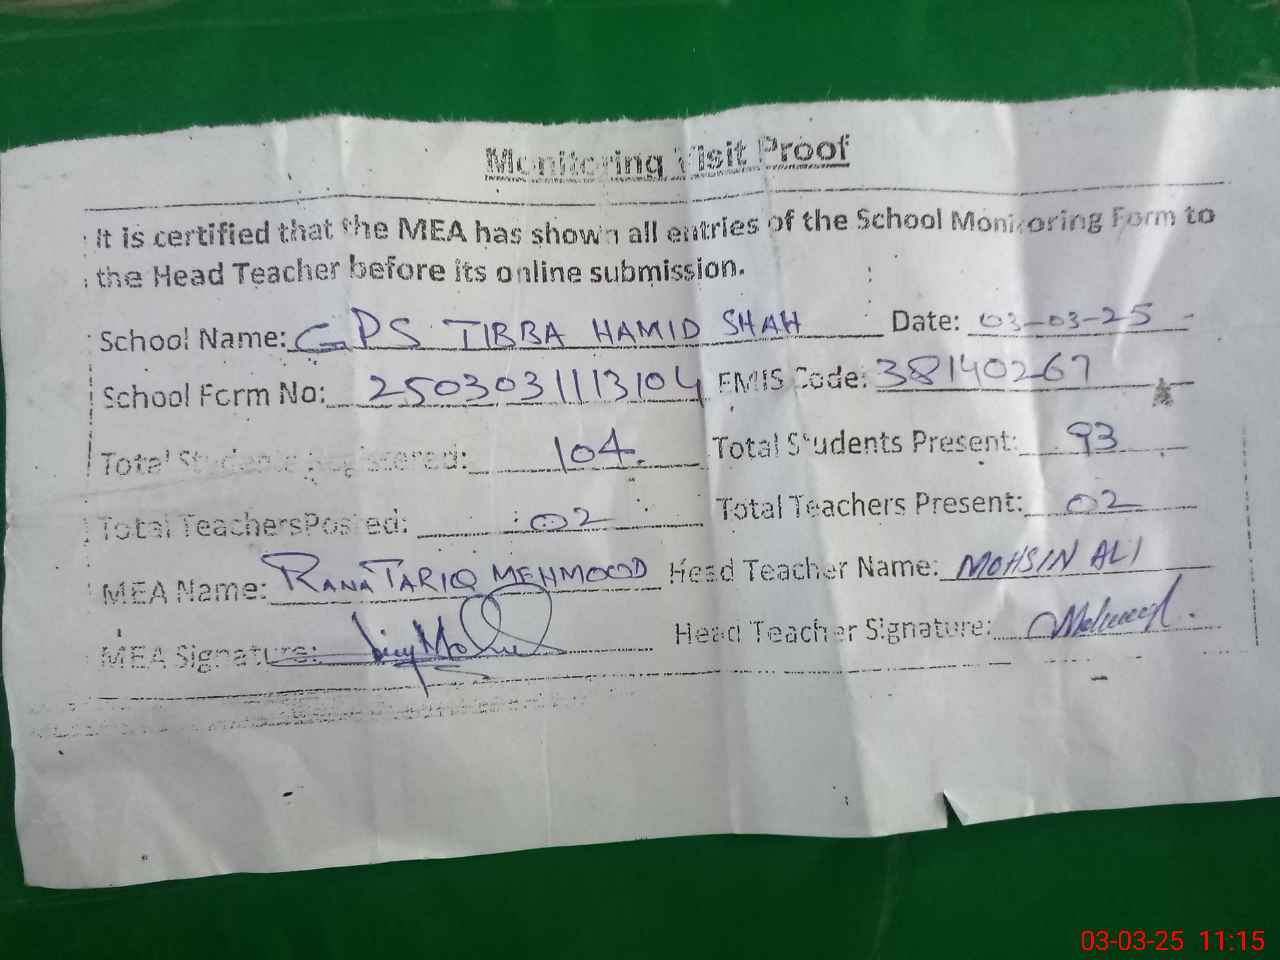 Monitoring Visit Proof
It is certified that the MEA has shown all entries of the School Monitoring Form to
the Head Teacher before its online submission.
School Name: GPS TIBBA HAMID SHAH Date: 03-03-25
School Form No: 2503031113104 EMIS Code: 38140267
Total Students Registered: 104. Total Students Present: 93
Total Teachers Posted: 02 Total Teachers Present: 02
MEA Name: RANA TARIQ MEHMOOD Head Teacher Name: MOHSIN ALI
MEA Signature: Head Teacher Signature:
03-03-25 11:15